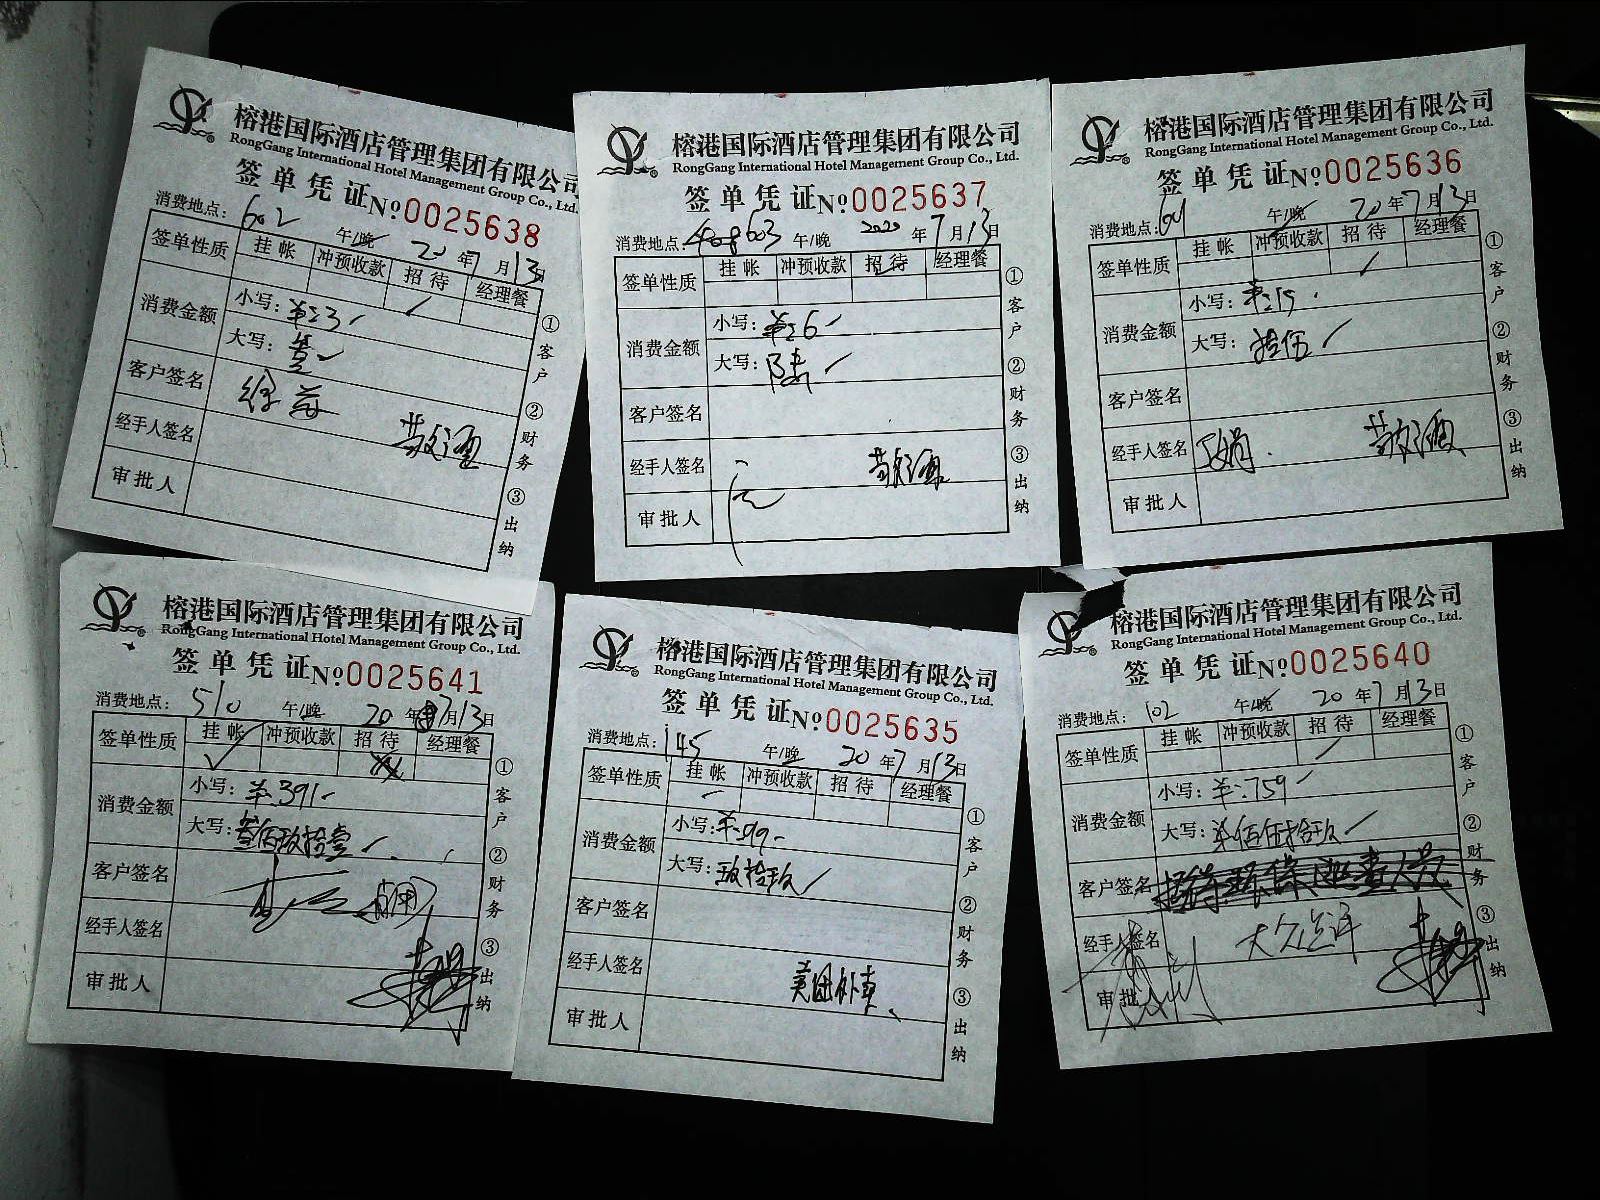 榕港国际酒店管理集团有限公司
RongGang International Hotel Management Group Co., Ltd.
签单凭证 No 0025638
消费地点: 602 午/晚 20 年 7 月 13 日
签单性质 挂帐 冲预收款 招待 经理餐
消费金额 小写: 3
大写:
客户签名
经手人签名
审批人
①客户 ②财务 ③出纳
榕港国际酒店管理集团有限公司
RongGang International Hotel Management Group Co., Ltd.
签单凭证 No 0025637
消费地点: 603 午/晚 2020 年 7 月 13 日
签单性质 挂帐 冲预收款 招待 经理餐
消费金额 小写: 6
大写: 陆
客户签名
经手人签名
审批人
①客户 ②财务 ③出纳
榕港国际酒店管理集团有限公司
RongGang International Hotel Management Group Co., Ltd.
签单凭证 No 0025636
消费地点: 601 午/晚 20 年 7 月 13 日
签单性质 挂帐 冲预收款 招待 经理餐
消费金额 小写: 15
大写: 拾伍
客户签名
经手人签名
审批人
①客户 ②财务 ③出纳
榕港国际酒店管理集团有限公司
RongGang International Hotel Management Group Co., Ltd.
签单凭证 No 0025641
消费地点: 510 午/晚 20 年 7 月 13 日
签单性质 挂帐 冲预收款 招待 经理餐
消费金额 小写: 391
大写: 叁佰玖拾壹
客户签名
经手人签名
审批人
①客户 ②财务 ③出纳
榕港国际酒店管理集团有限公司
RongGang International Hotel Management Group Co., Ltd.
签单凭证 No 0025635
消费地点: 145 午/晚 20 年 7 月 13 日
签单性质 挂帐 冲预收款 招待 经理餐
消费金额 小写: 99
大写: 玖拾玖
客户签名
经手人签名 美团
审批人
①客户 ②财务 ③出纳
榕港国际酒店管理集团有限公司
RongGang International Hotel Management Group Co., Ltd.
签单凭证 No 0025640
消费地点: 102 午/晚 20 年 7 月 13 日
签单性质 挂帐 冲预收款 招待 经理餐
消费金额 小写: 759
大写: 佰伍拾玖
客户签名
经手人签名
审批人
①客户 ②财务 ③出纳